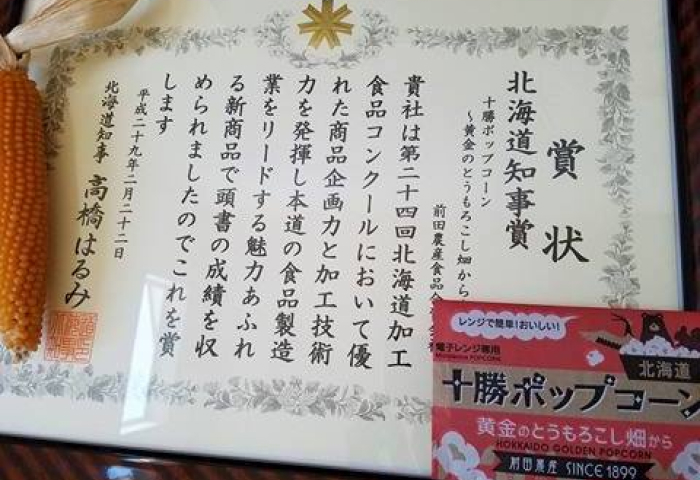 賞状
北海道知事賞
十勝ポップコーン
～黄金のとうもろこし畑から
前田農産食品
貴社は第二十四回北海道加工
食品コンクールにおいて優
れた商品企画力と加工技術
力を発揮し本道の食品製造
業をリードする魅力あふれ
る新商品で頭書の成績を収
められましたのでこれを賞
します
平成二十九年二月二十二日
北海道知事 高橋はるみ
レンジで簡単!おいしい!
電子レンジ専用
Microwave POPCORN
北海道
十勝ポップコーン
黄金のとうもろこし畑から
HOKKAIDO GOLDEN POPCORN
前田農産 SINCE 1899